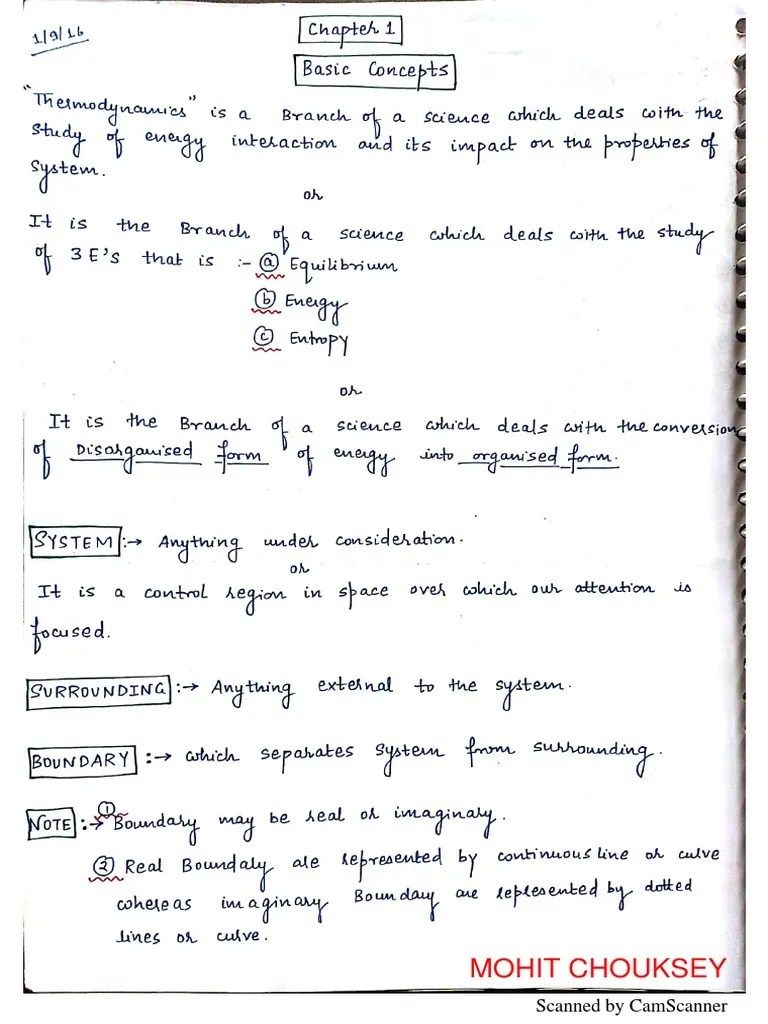 1/9/16
Chapter 1
Basic Concepts
"Thermodynamics" is a Branch of a science which deals with the
study of energy interaction and its impact on the properties of
system.
or
It is the Branch of a science which deals with the study
of 3 E's that is :- ⓐ Equilibrium
ⓑ Energy
ⓒ Entropy
or
It is the Branch of a science which deals with the conversion
of Disorganised form of energy into organised form.
SYSTEM :→ Anything under consideration.
or
It is a control region in space over which our attention is
focused.
SURROUNDING :→ Anything external to the system.
BOUNDARY :→ which separates system from surrounding.
NOTE :→ ① Boundary may be real or imaginary.
② Real Boundary are represented by continuous line or curve
whereas imaginary Boundary are represented by dotted
lines or curve.
MOHIT CHOUKSEY
Scanned by CamScanner